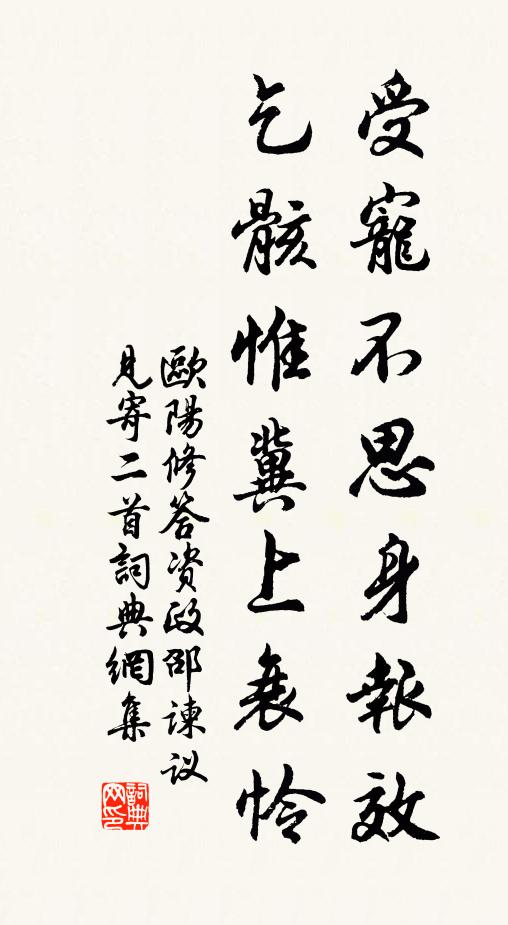 受寵不思身報效
乞骸惟冀上哀怜
歐陽修答资政邵諫议
見寄二首詞典網集
詞典
网印